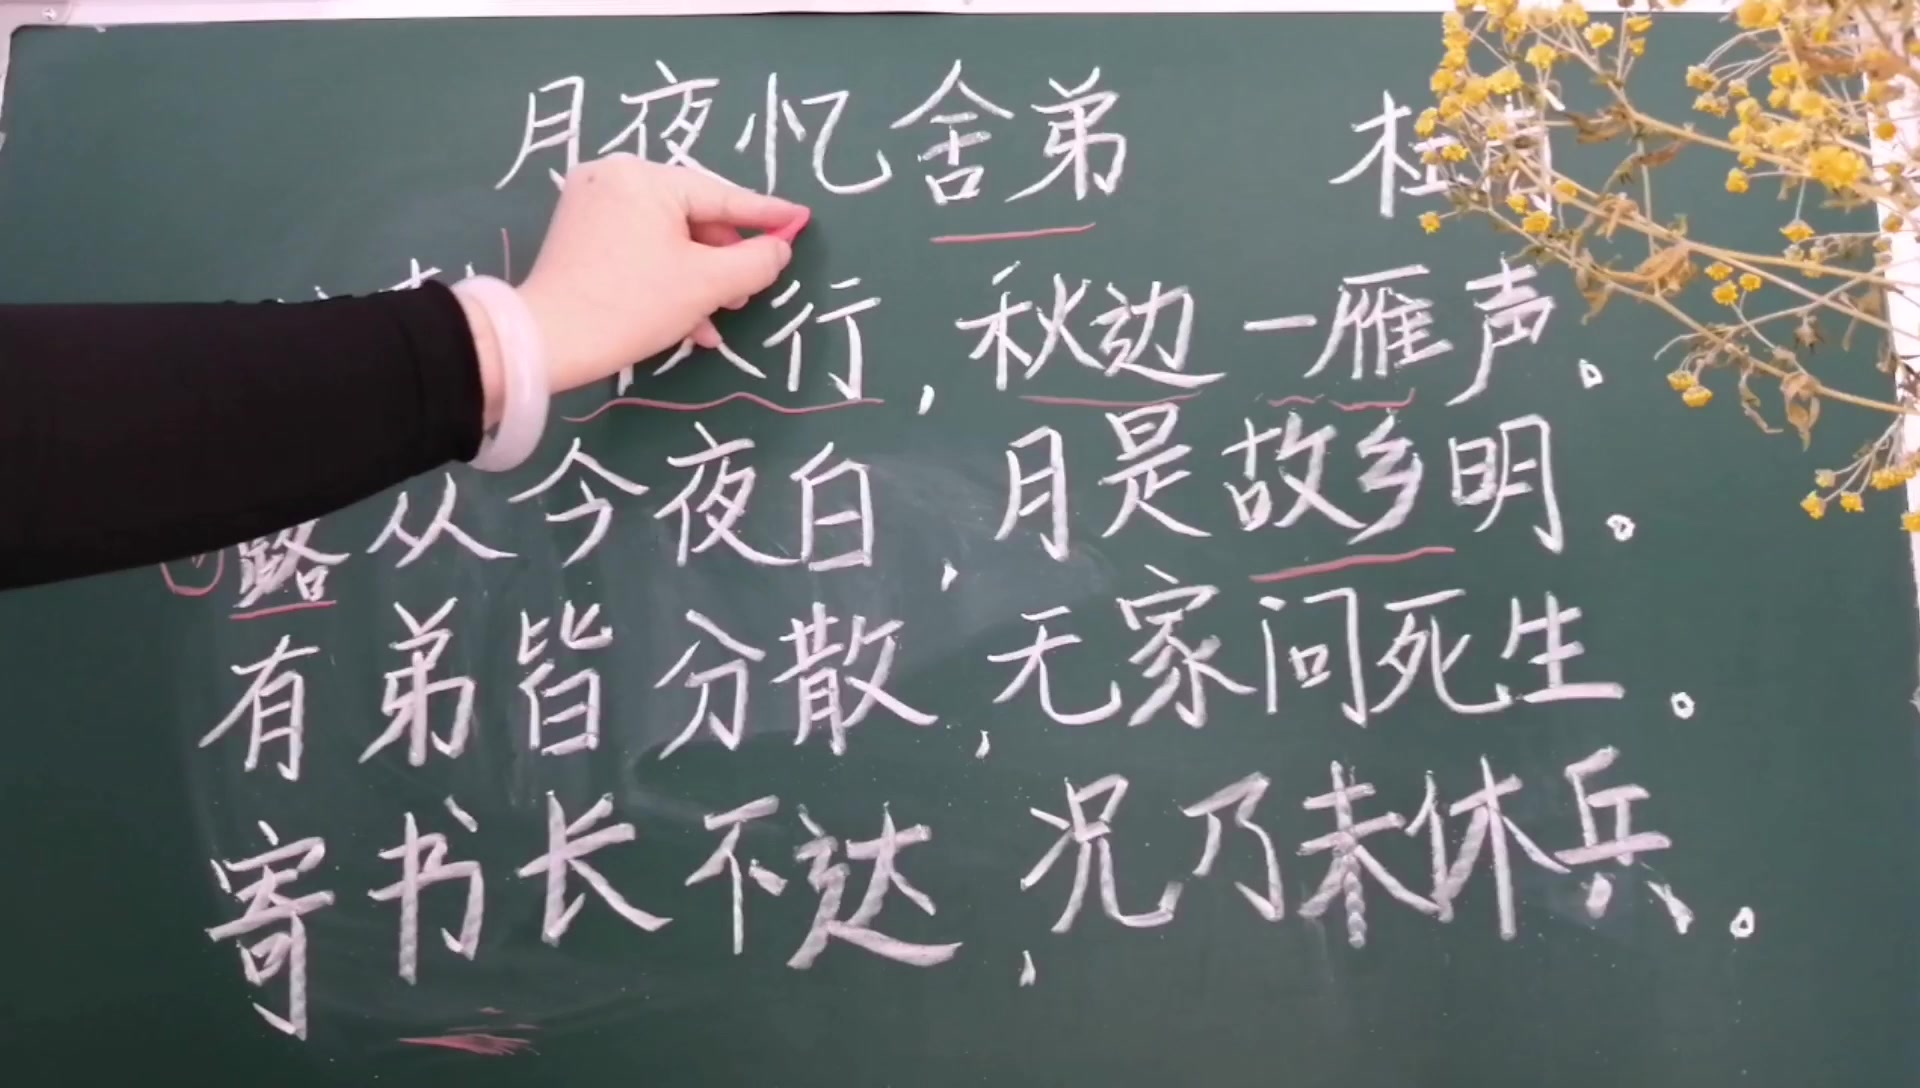 月夜忆舍弟 杜
人行，秋边一雁声。
露从今夜白，月是故乡明。
有弟皆分散，无家问死生。
寄书长不达，况乃未休兵。